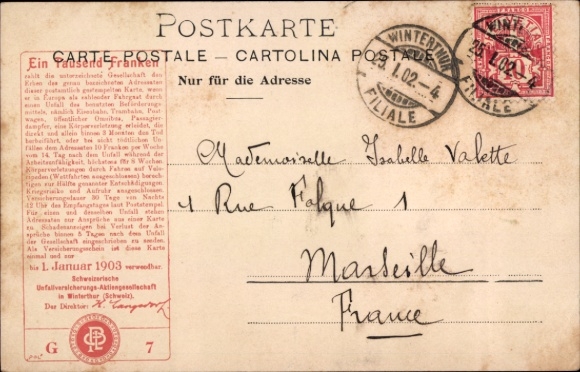 POSTKARTE
CARTE POSTALE — CARTOLINA POSTALE
Nur für die Adresse
Ein Tausend Franken
zahlt die unterzeichnete Gesellschaft den
Erben des genau adressierten Adressaten
dieser postamtlich gestempelten Karte, wann
er in Europa als zahlender Fahrgast durch
einen Unfall des benutzten Beförderungs-
mittels, nämlich Eisenbahn, Trambahn, Post
wagen, öffentlicher Omnibus, Passagier-
dampfer, eine Körperverletzung erleidet, die
direkt und allein binnen 3 Monaten den Tod
herbeiführt, oder bei nicht tödtlichen Un-
fällen dem Adressaten 10 Franken per Woche
vom 14. Tag nach dem Unfall während der
Arbeitsunfähigkeit, höchstens für 8 Wochen.
Körperverletzungen durch Fahren auf Velo-
cipeden (Wettfahrten ausgeschlossen) berech-
tigen zur Hälfte genannter Entschädigungen
Kriegsrisiko und Aufruhr ausgeschlossen.
Versicherungsdauer 90 Tage von Nachts
12 Uhr des Empfangstages laut Poststempel
Für einen und denselben Unfall stehen
Adressaten nur Ansprüche aus einer Karte
zu Schadenanzeigen bei Verlust der An-
sprüche binnen 8 Tagen nach dem Unfall
der Gesellschaft eingeschrieben zu senden.
Als Versicherungsschein ist diese Karte
einmal und nur
bis 1. Januar 1903 verwendbar
Schweizerische
Unfallversicherungs-Aktiengesellschaft
in Winterthur (Schweiz).
Der Direktor:
G 7
WINTERTHUR
25.I.02.-4
FILIALE
FRANCO
10
WINTERTHUR
25.I.02.-4
FILIALE
Mademoiselle Isabelle Valette
1 Rue Falque 1
Marseille
France